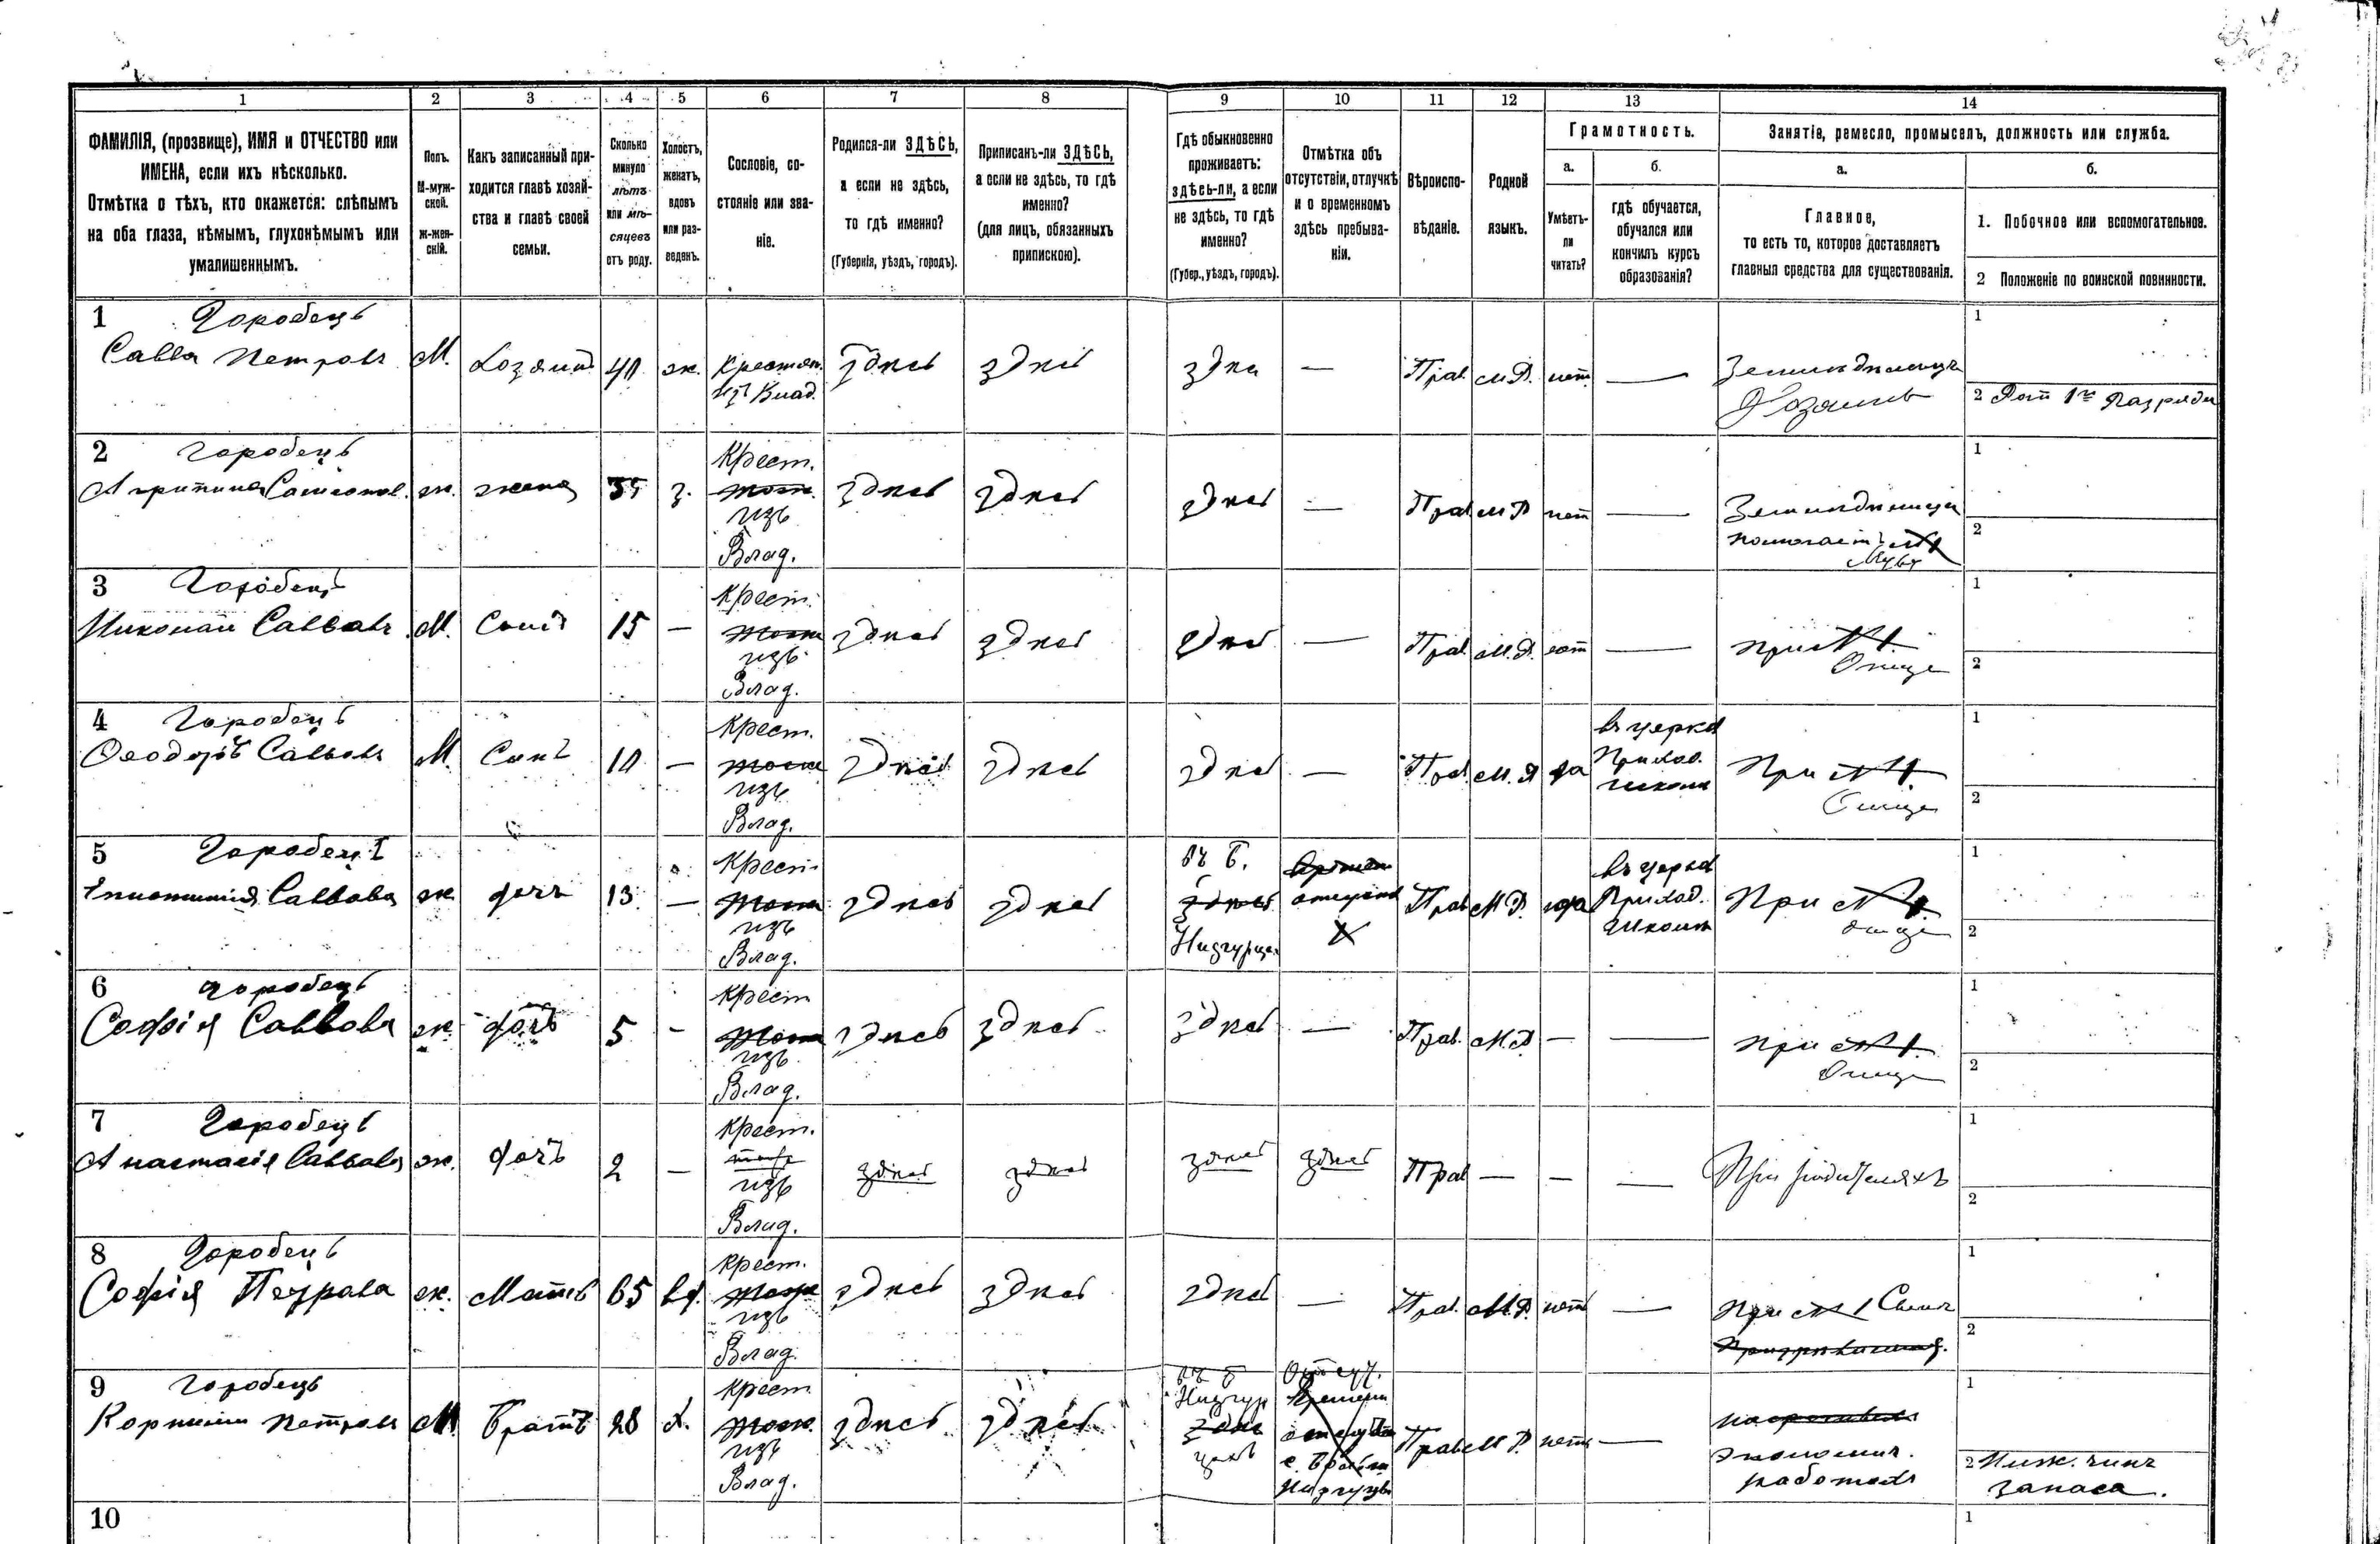 1 2 3 4 5 6 7 8 9 10 11 12 13 14
ФАМИЛІЯ, (прозвище), ИМЯ и ОТЧЕСТВО или ИМЕНА, если ихъ нѣсколько.
Отмѣтка о тѣхъ, кто окажется: слѣпымъ на оба глаза, нѣмымъ, глухонѣмымъ или умалишеннымъ.
Полъ.
М-мужской.
Ж-женскій.
Какъ записанный приходится главѣ хозяйства и главѣ своей семьи.
Сколько минуло лѣтъ или мѣсяцевъ отъ роду.
Холостъ, женатъ, вдовъ или разведенъ.
Сословіе, состояніе или званіе.
Родился-ли ЗДѢСЬ, а если не здѣсь, то гдѣ именно?
(Губернія, уѣздъ, городъ).
Приписанъ-ли ЗДѢСЬ, а если не здѣсь, то гдѣ именно?
(для лицъ, обязанныхъ припискою).
Гдѣ обыкновенно проживаетъ: здѣсь-ли, а если не здѣсь, то гдѣ именно?
(Губер., уѣздъ, городъ).
Отмѣтка объ отсутствіи, отлучкѣ и о временномъ здѣсь пребываніи.
Вѣроисповѣданіе.
Родной языкъ.
Грамотность.
а.
Умѣетъ-ли читать?
б.
гдѣ обучается, обучался или кончилъ курсъ образованія?
Занятіе, ремесло, промыселъ, должность или служба.
а.
Главное,
то есть то, которое доставляетъ главныя средства для существованія.
б.
1. Побочное или вспомогательное.
2 Положеніе по воинской повинности.
1 Городецъ
Савва Петровъ М. Хозяинъ 40 ж. Крестьян. изъ Влад. здѣсь здѣсь здѣсь — Прав. М.Р. нет — Земледѣлецъ Хозяинъ
1
2 Рат 1го Разряда
2 Городецъ
Агрипина Самсонов. ж. жена 35 з. Крест. изъ Влад. здѣсь здѣсь здѣсь — Прав М Р нет — Земледѣлица помогаетъ мужу
1
2
3 Городецъ
Николай Саввовъ М. Сынъ 15 — Крест. изъ Влад. здѣсь здѣсь здѣсь — Прав. М.Р. нет — при Отцѣ
1
2
4 Городецъ
Ѳеодоръ Саввовъ М Сынъ 10 — Крест. изъ Влад. здѣсь здѣсь здѣсь — Прав. М.Р да въ церков Приход. школѣ При Отцѣ
1
2
5 Городецъ
Саввова ж дочь 13 — Крест. изъ Влад. здѣсь здѣсь въ Б. Прав М Р. да въ церков Приход. школѣ При отцѣ
1
2
6 Городецъ
Софія Саввова ж. дочь 5 - Крест изъ Влад. здѣсь здѣсь здѣсь — Прав. М.Р. — — при Отцѣ
1
2
7 Городецъ
Анастасія Саввова ж. дочь 2 — Крест. изъ Влад. здѣсь здѣсь здѣсь здѣсь Прав — — — При родителяхъ
1
2
8 Городецъ
Софія Петрова ж. Мать 65 вд. Крест. изъ Влад. здѣсь здѣсь здѣсь — Прав. М.Р. нет — При Сынѣ
1
2
9 Городецъ
Корнилій Петровъ М Братъ 28 х. Крест. изъ Влад. здѣсь здѣсь Прав М Р. нет — экономич. работникъ
1
2 Ниж. чинъ запаса.
10
1